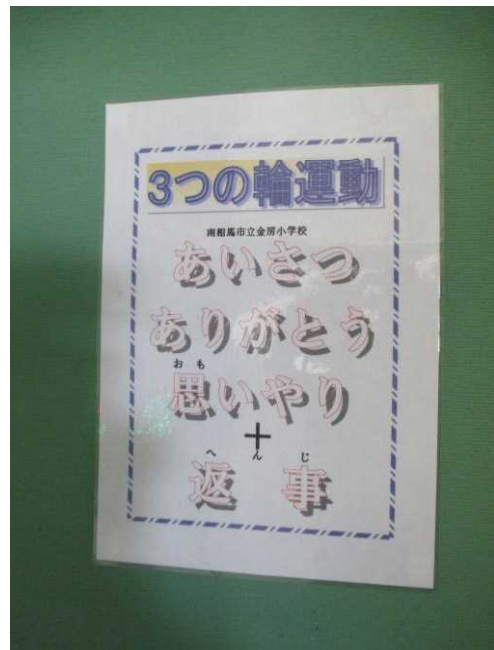 3つの輪運動
南相馬市立金房小学校
あいさつ
ありがとう
おも
思いやり
+
へんじ
返事